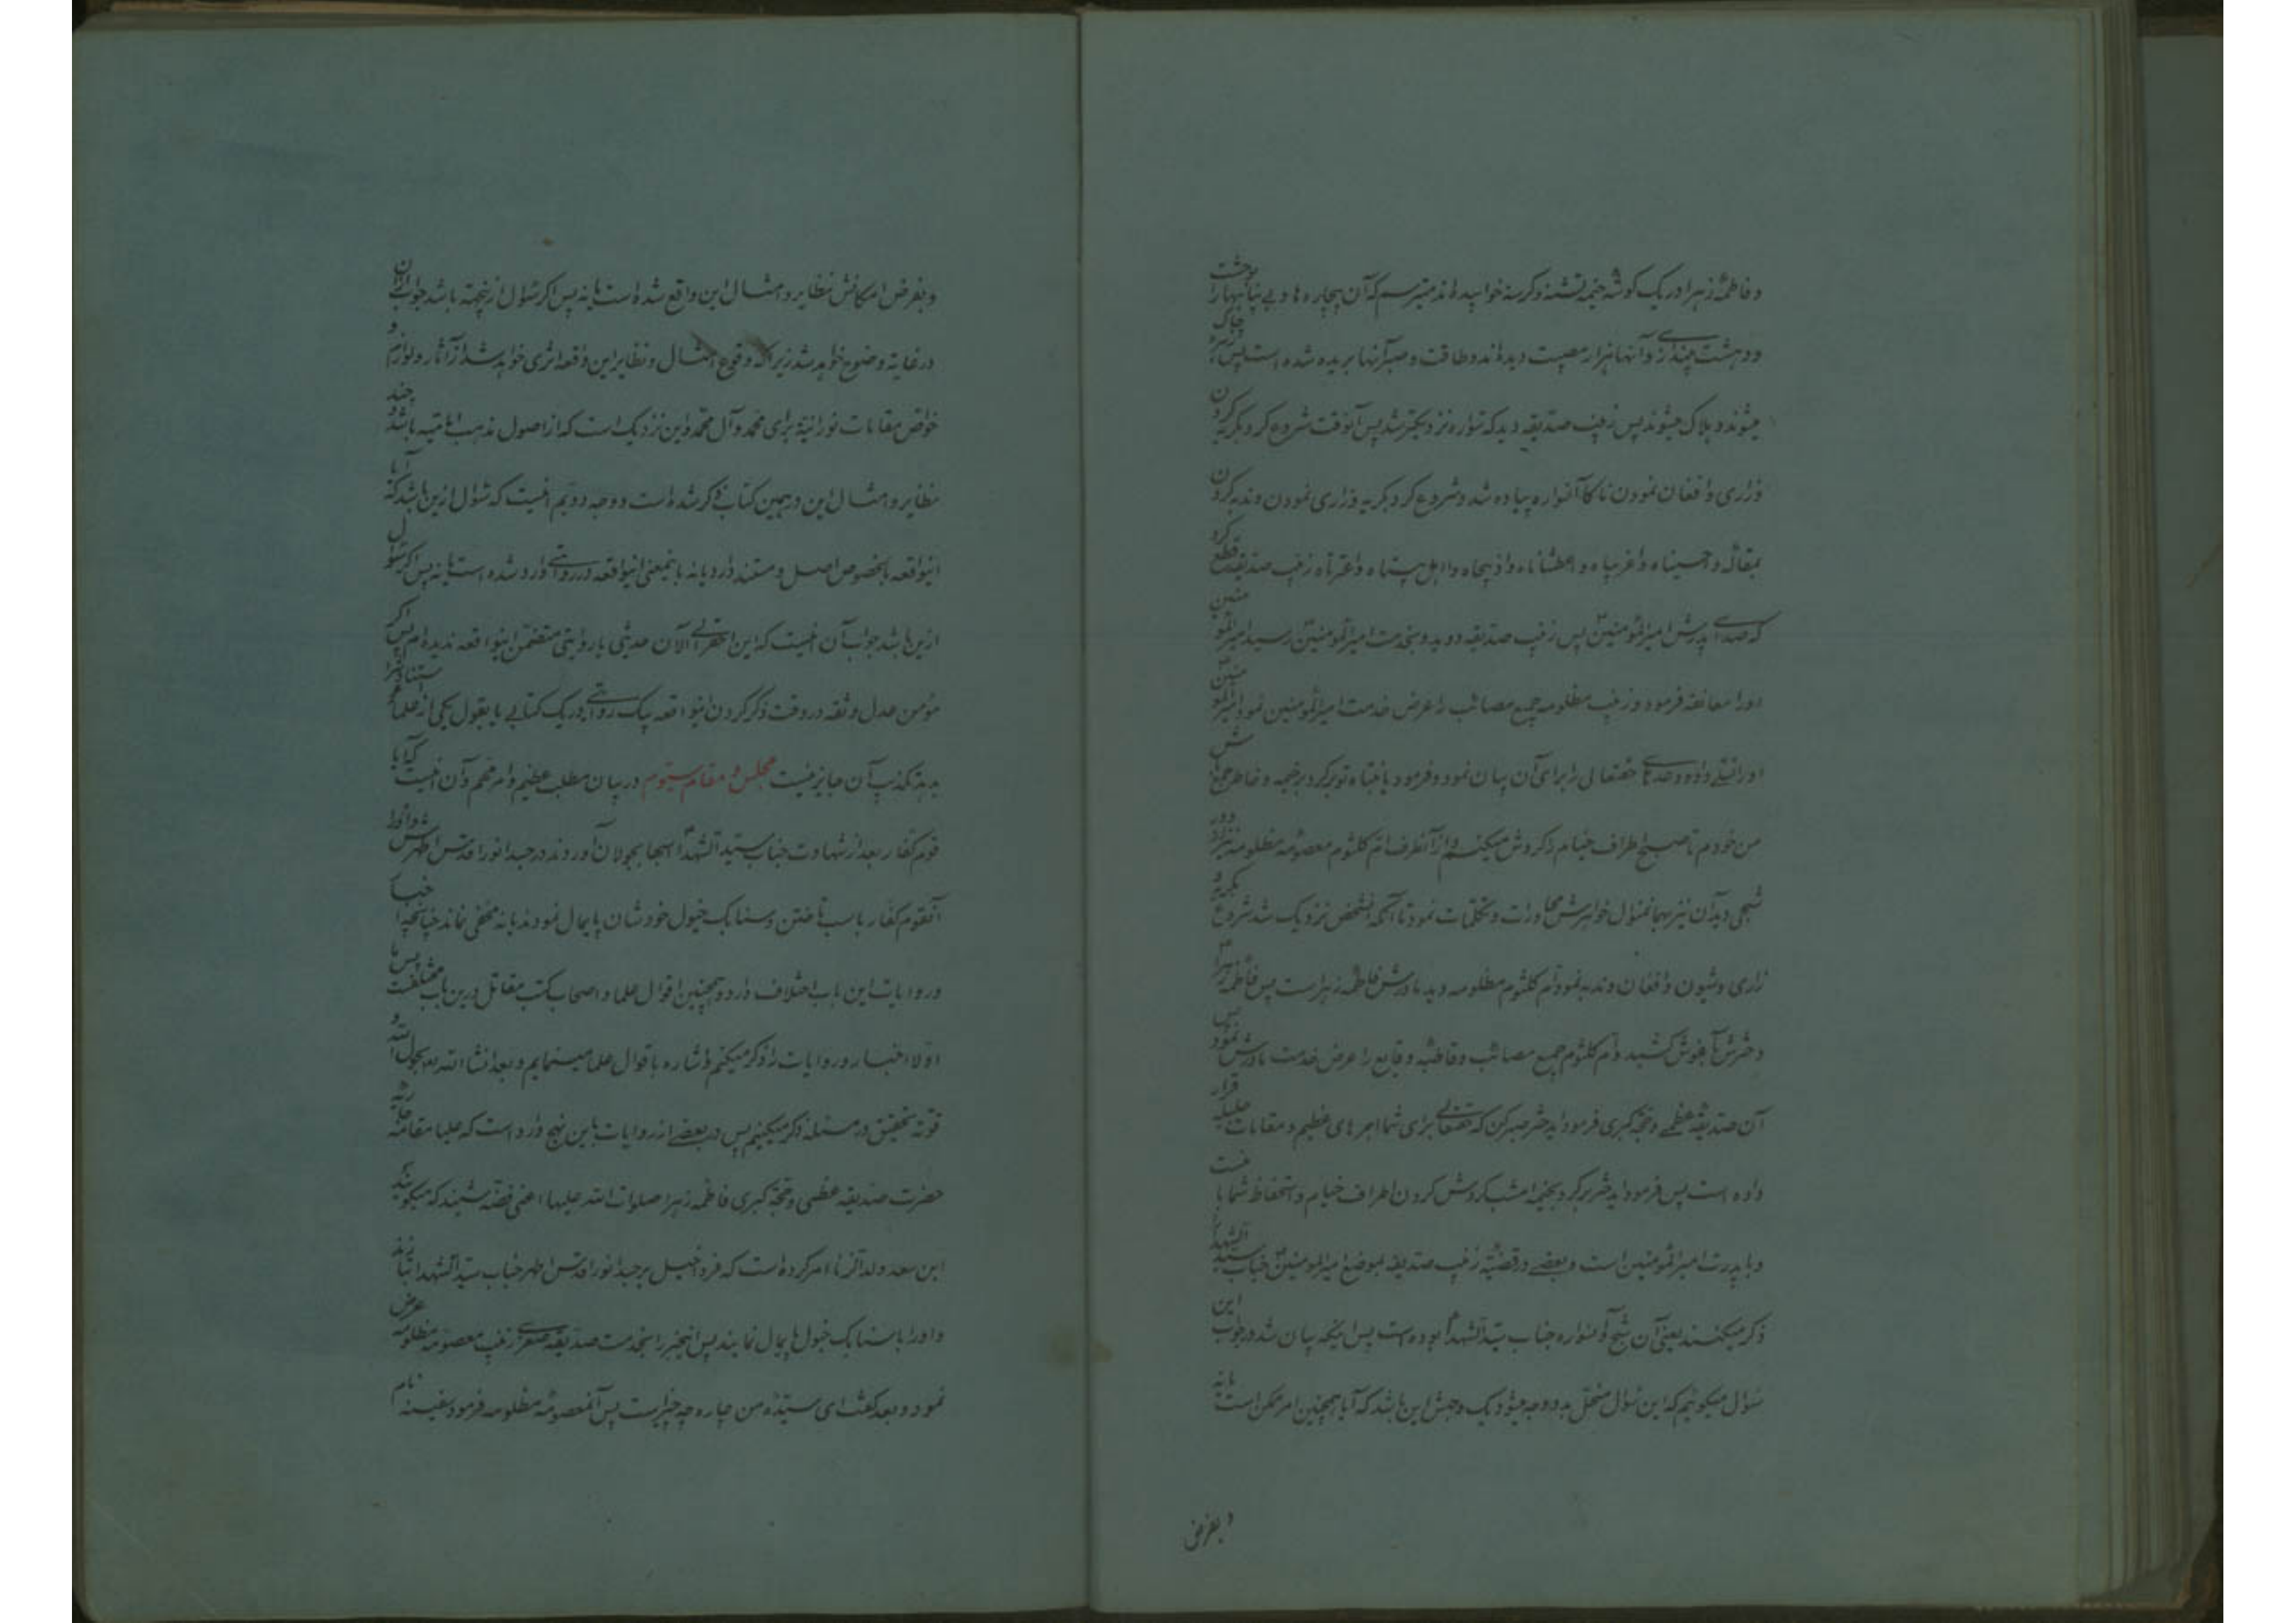 و فاطمهٔ زهرا در یک گوشه خیمه تشنه و گرسنه خوابیده‌اند میترسم که آن بیچاره‌ها و بی پناهها را بوحشت
و دهشت بیندازد و آنها هزار مصیبت دیده‌اند و طاقت و صبر آنها بریده شده است پس چاک
میشوند و هلاک میشوند پس زینب صدیقه دید که سواره نزدیکتر شد پس آنوقت شروع کرد بگریه کردن
و زاری و افغان نمودن ناگاه آنسواره پیاده شد و شروع کرد بگریه و زاری نمودن و ندبه کردن
بمقاله وا حسیناه وا غریباه وا عطشاناه وا ذبیحاه وا اهل بیتاه وا عترتاه زینب صدیقه قطع کرد
که صدای پدرش امیرالمؤمنین پس زینب صدیقه دوید و بخدمت امیرالمؤمنین رسید امیرالمؤمنین
اورا معانقه فرمود و زینب مظلومه جمیع مصائب را عرض خدمت امیرالمؤمنین نمود امیرالمؤمنین
اورا تسلی داد و وعدهای حقتعالی را برای آن بیان نمود و فرمود یا بنتاه تو برگرد بخیمه و خاطر جمع باش
من خودم تا صبح اطراف خیام گردش میکنم و از آنطرف ام کلثوم معصومه مظلومه نیز از دور
شبحی دید آن نیز بهمانمنوال خواهرش محاورات و تکلمات نمود تا آنکه آنشخص نزدیک شد شروع بگریه و
زاری و شیون و افغان و ندبه نمود ام کلثوم مظلومه دید مادرش فاطمه زهرا است پس فاطمه زهرا
دخترش را بآغوش کشید و ام کلثوم جمیع مصائب و وقایع را عرض خدمت مادرش نمود پس
آن صدیقه عظمی و حجه کبری فرمود ای دختر صبر کن که حقتعالی برای شما اجرهای عظیم و مقامات جلیله قرار
داده است پس فرمود ای دختر برگرد بخیمه امشب گردش کردن اطراف خیام و استحفاظ شما با منست
و با پدرت امیرالمؤمنین است و بعضی در قضیه زینب صدیقه بموضع امیرالمؤمنین جناب سید الشهدا
ذکر میکنند یعنی آن شبح و سواره جناب سید الشهدا بوده است پس اینکه بیان شد در جواب این
سؤال میگوئیم که این سؤال منحل بدو وجه میشود یک وجهش این باشد که آیا همچنین امر ممکن است یا نه
و بفرض
و بفرض امکانش نظایر و امثال این واقع شده است یا نه پس اگر سؤال ازینجهة باشد جواب آن
در غایه وضوح خواهد شد زیرا که وقوع امثال و نظایر این واقعه اثری خواهد شد از آثار و لوازم و
خواص مقامات نورانیة برای محمد و آل محمد و این نزدیک است که از اصول مذهب امامیه باشد چند
نظایر و امثال این در همین کتاب ذکر شده است و وجه دویم اینست که سؤال ازین باشد که آیا
اینواقعه بالخصوص اصل و مستند دارد یا نه باینمعنی اینواقعه در روایتی وارد شده است یا نه پس اگر سؤال
ازین باشد جواب آن اینست که این احقر الی الآن حدیثی یا روایتی متضمن اینواقعه ندیده‌ام پس اگر
مؤمن عدل و ثقه در وقت ذکر کردن اینواقعه بیک روایتی در یک کتابی یا بقول یکی از علما استناد
بدهد تکذیب آن جایز نیست مجلس و مقام سیّوم در بیان مطلب عظیم و امر مخم و آن اینست که آیا
قوم کفار بعد از شهادت جناب سید الشهدا اسبها بجولان آوردند در جسد انور اقدس اطهرش
آنقوم کفار با اسب تاختن و سنابک خیول خودشان پایمال نمودند یا نه مخفی نماند چنانچه اخبار
و روایات این باب اختلاف دارد و همچنین اقوال علما و اصحاب کتب مقاتل درین باب مختلفست پس ما
اولا اخبار و روایات را ذکر میکنم و اشاره باقوال علما مینمایم و بعد انشاالله بحول الله و
قوته تحقیق در مسئله ذکر میکنیم پس در بعضی از روایات باین نهج وارد است که علیا مقامه جاریه
حضرت صدیقه عظمی و حجة کبری فاطمه زهرا صلوات الله علیها اعنی فضه شنید که میگویند
ابن سعد ولد الزنا امر کرده است که فردا خیل بر جسد انور اقدس اطهر جناب سید الشهدا بتازند
و اورا با سنابک خیول پایمال نمایند پس اینخبر را بخدمت صدیقه صغری زینب معصومه مظلومه عرض
نمود و بعد گفت ای سیده من چاره چه چیز است پس آنمعصومه مظلومه فرمود سفینه نام